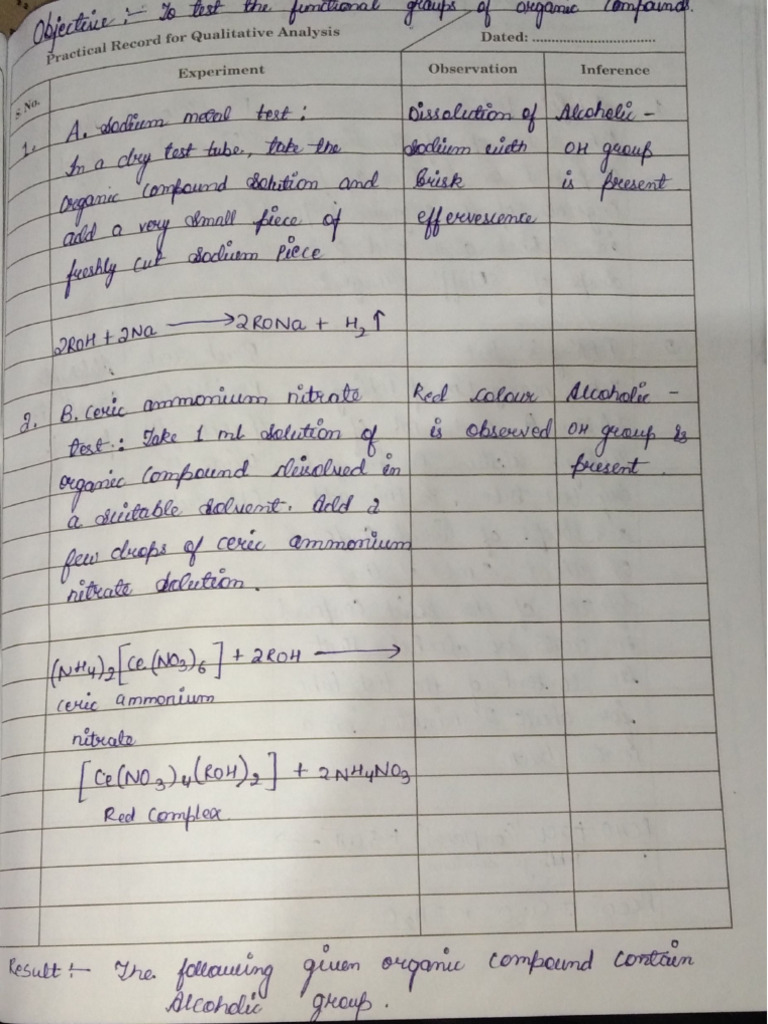 Objective :- To test the functional groups of organic compounds.
Practical Record for Qualitative Analysis Dated: ...............................
S.No. Experiment Observation Inference
1. A. Sodium metal test : Dissolution of Alcoholic -
In a dry test tube, take the sodium with OH group
organic compound solution and Brisk is present
add a very small piece of effervescence
freshly cut sodium piece
2ROH + 2Na ⟶ 2RONa + H₂↑
2. B. Ceric ammonium nitrate Red colour Alcoholic -
test : Take 1 ml solution of is observed OH group is
organic compound dissolved in present.
a suitable solvent. Add a
few drops of ceric ammonium
nitrate solution.
(NH4)₂[Ce(NO₃)₆] + 2ROH ⟶
Ceric ammonium
nitrate
[Ce(NO₃)₄(ROH)₂] + 2NH₄NO₃
Red Complex.
Result :- The following given organic compound contain
Alcoholic group.